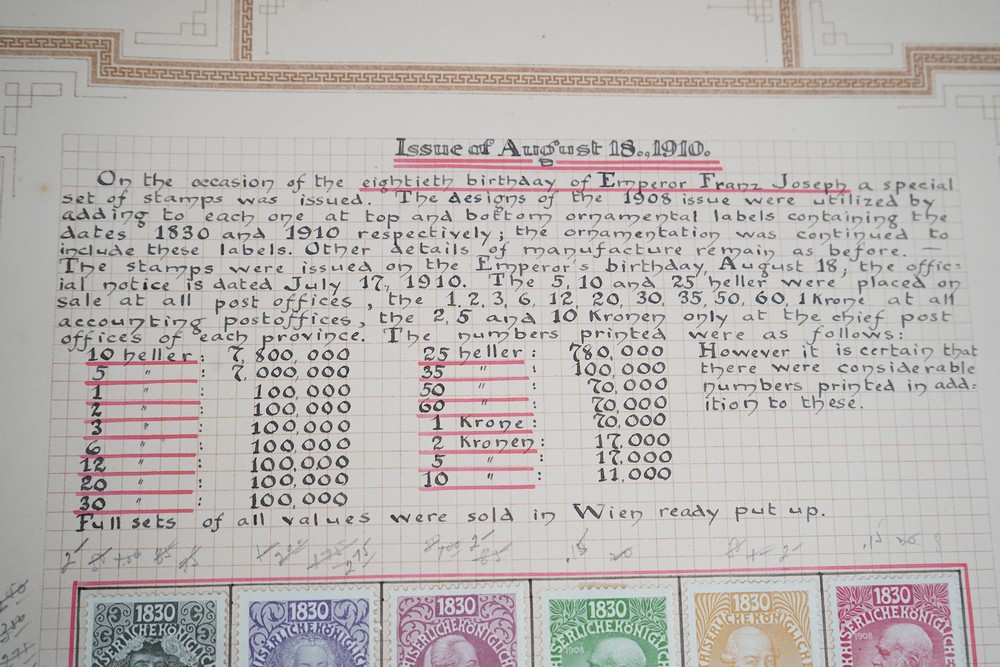 Issue of August 18., 1910.
On the occasion of the eightieth birthday of Emperor Franz Joseph a special
set of stamps was issued. The designs of the 1908 issue were utilized by
adding to each one at top and bottom ornamental labels containing the
dates 1830 and 1910 respectively; the ornamentation was continued to
include these labels. Other details of manufacture remain as before. —
The stamps were issued on the Emperor's birthday, August 18, the offic-
ial notice is dated July 17, 1910. The 5, 10 and 25 heller were placed on
sale at all post offices, the 1, 2, 3, 6, 12, 20, 30, 35, 50, 60, 1 Krone at all
accounting postoffices, the 2, 5 and 10 Kronen only at the chief post
offices of each province. The numbers printed were as follows:
10 heller: 7,800,000
5 " : 7,000,000
1 " : 100,000
2 " : 100,000
3 " : 100,000
6 " : 100,000
12 " : 100,000
20 " : 100,000
30 " : 100,000
25 heller: 780,000
35 " : 100,000
50 " : 70,000
60 " : 70,000
1 Krone: 70,000
2 Kronen: 17,000
5 " : 17,000
10 " : 11,000
However it is certain that
there were considerable
numbers printed in add-
ition to these.
Full sets of all values were sold in Wien ready put up.
1830
1830
1830
1830
1830
1830
1908
1908